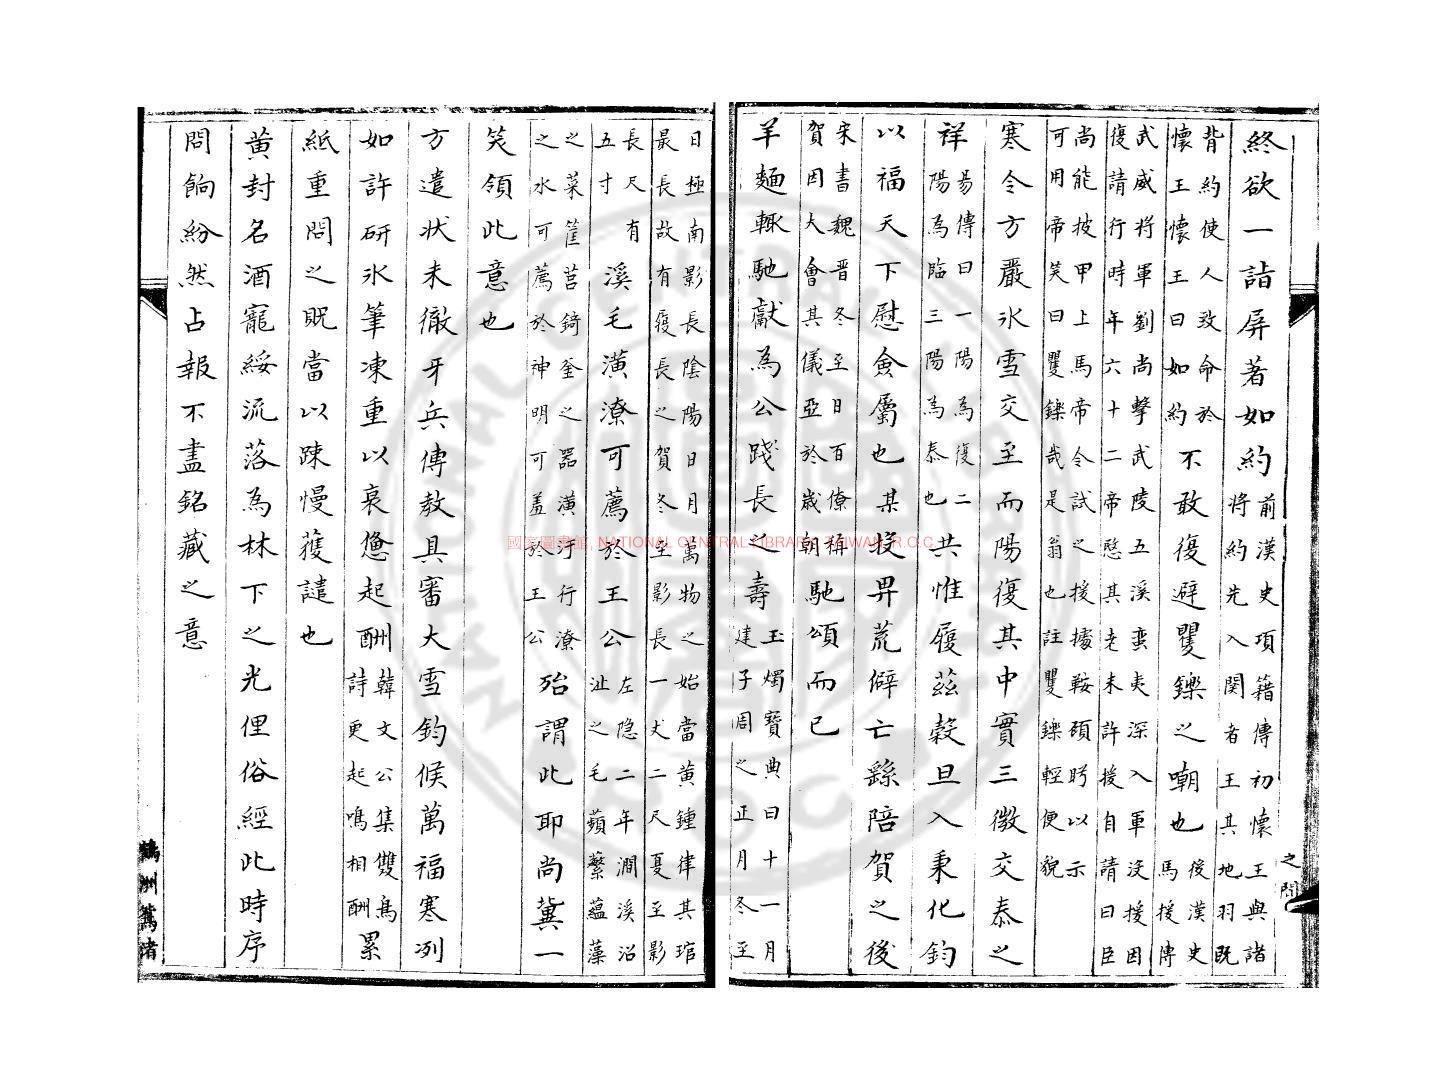 終欲一詣屏著如約前漢史項籍傳初懷王與諸將約先入関者王其地羽既
背約使人致命於懷王懷王曰如約不敢復避矍鑠之嘲也後漢史馬援傳
武威将軍劉尚擊武陵五溪蛮夷深入軍没援因復請行時年六十二帝愍其老未許援自請曰臣
尚能披甲上馬帝令試之援據鞍顧眄以示可用帝笑曰矍鑠哉是翁也註矍鑠輕便貌
寒令方嚴氷雪交至而陽復其中實三微交泰之
祥易傳曰一陽為復二陽為臨三陽為泰也共惟履茲穀旦入秉化鈞
以福天下慰僉屬也某投畀荒僻亡繇陪賀之後
宋書魏晋冬至日百僚稱賀因大會其儀亞於歳朝馳頌而已
羊麵輙馳獻為公踐長之壽玉燭寶典曰十一月建子周之正月冬至
日極南影長陰陽日月萬物之始當黄鍾律其琯最長故有履長之賀冬至影長一丈二尺夏至影
長尺有五寸溪毛潢潦可薦於王公左隐二年澗溪沼沚之毛蘋蘩蘊藻
之菜筐筥錡釜之器潢汙行潦之水可薦於神明可羞於王公殆謂此耶尚冀一
笑領此意也
方遣状未徹牙兵傳教具審大雪鈞候萬福寒冽
如許研氷筆凍重以衰憊起酬韓文公集雙鳥詩更起鳴相酬累
紙重問之貺當以踈慢獲譴也
黄封名酒寵綏流落為林下之光俚俗經此時序
問餉紛然占報不盡銘藏之意
之問
國家圖書館, NATIONAL CENTRAL LIBRARY, TAIWAN, R.O.C.